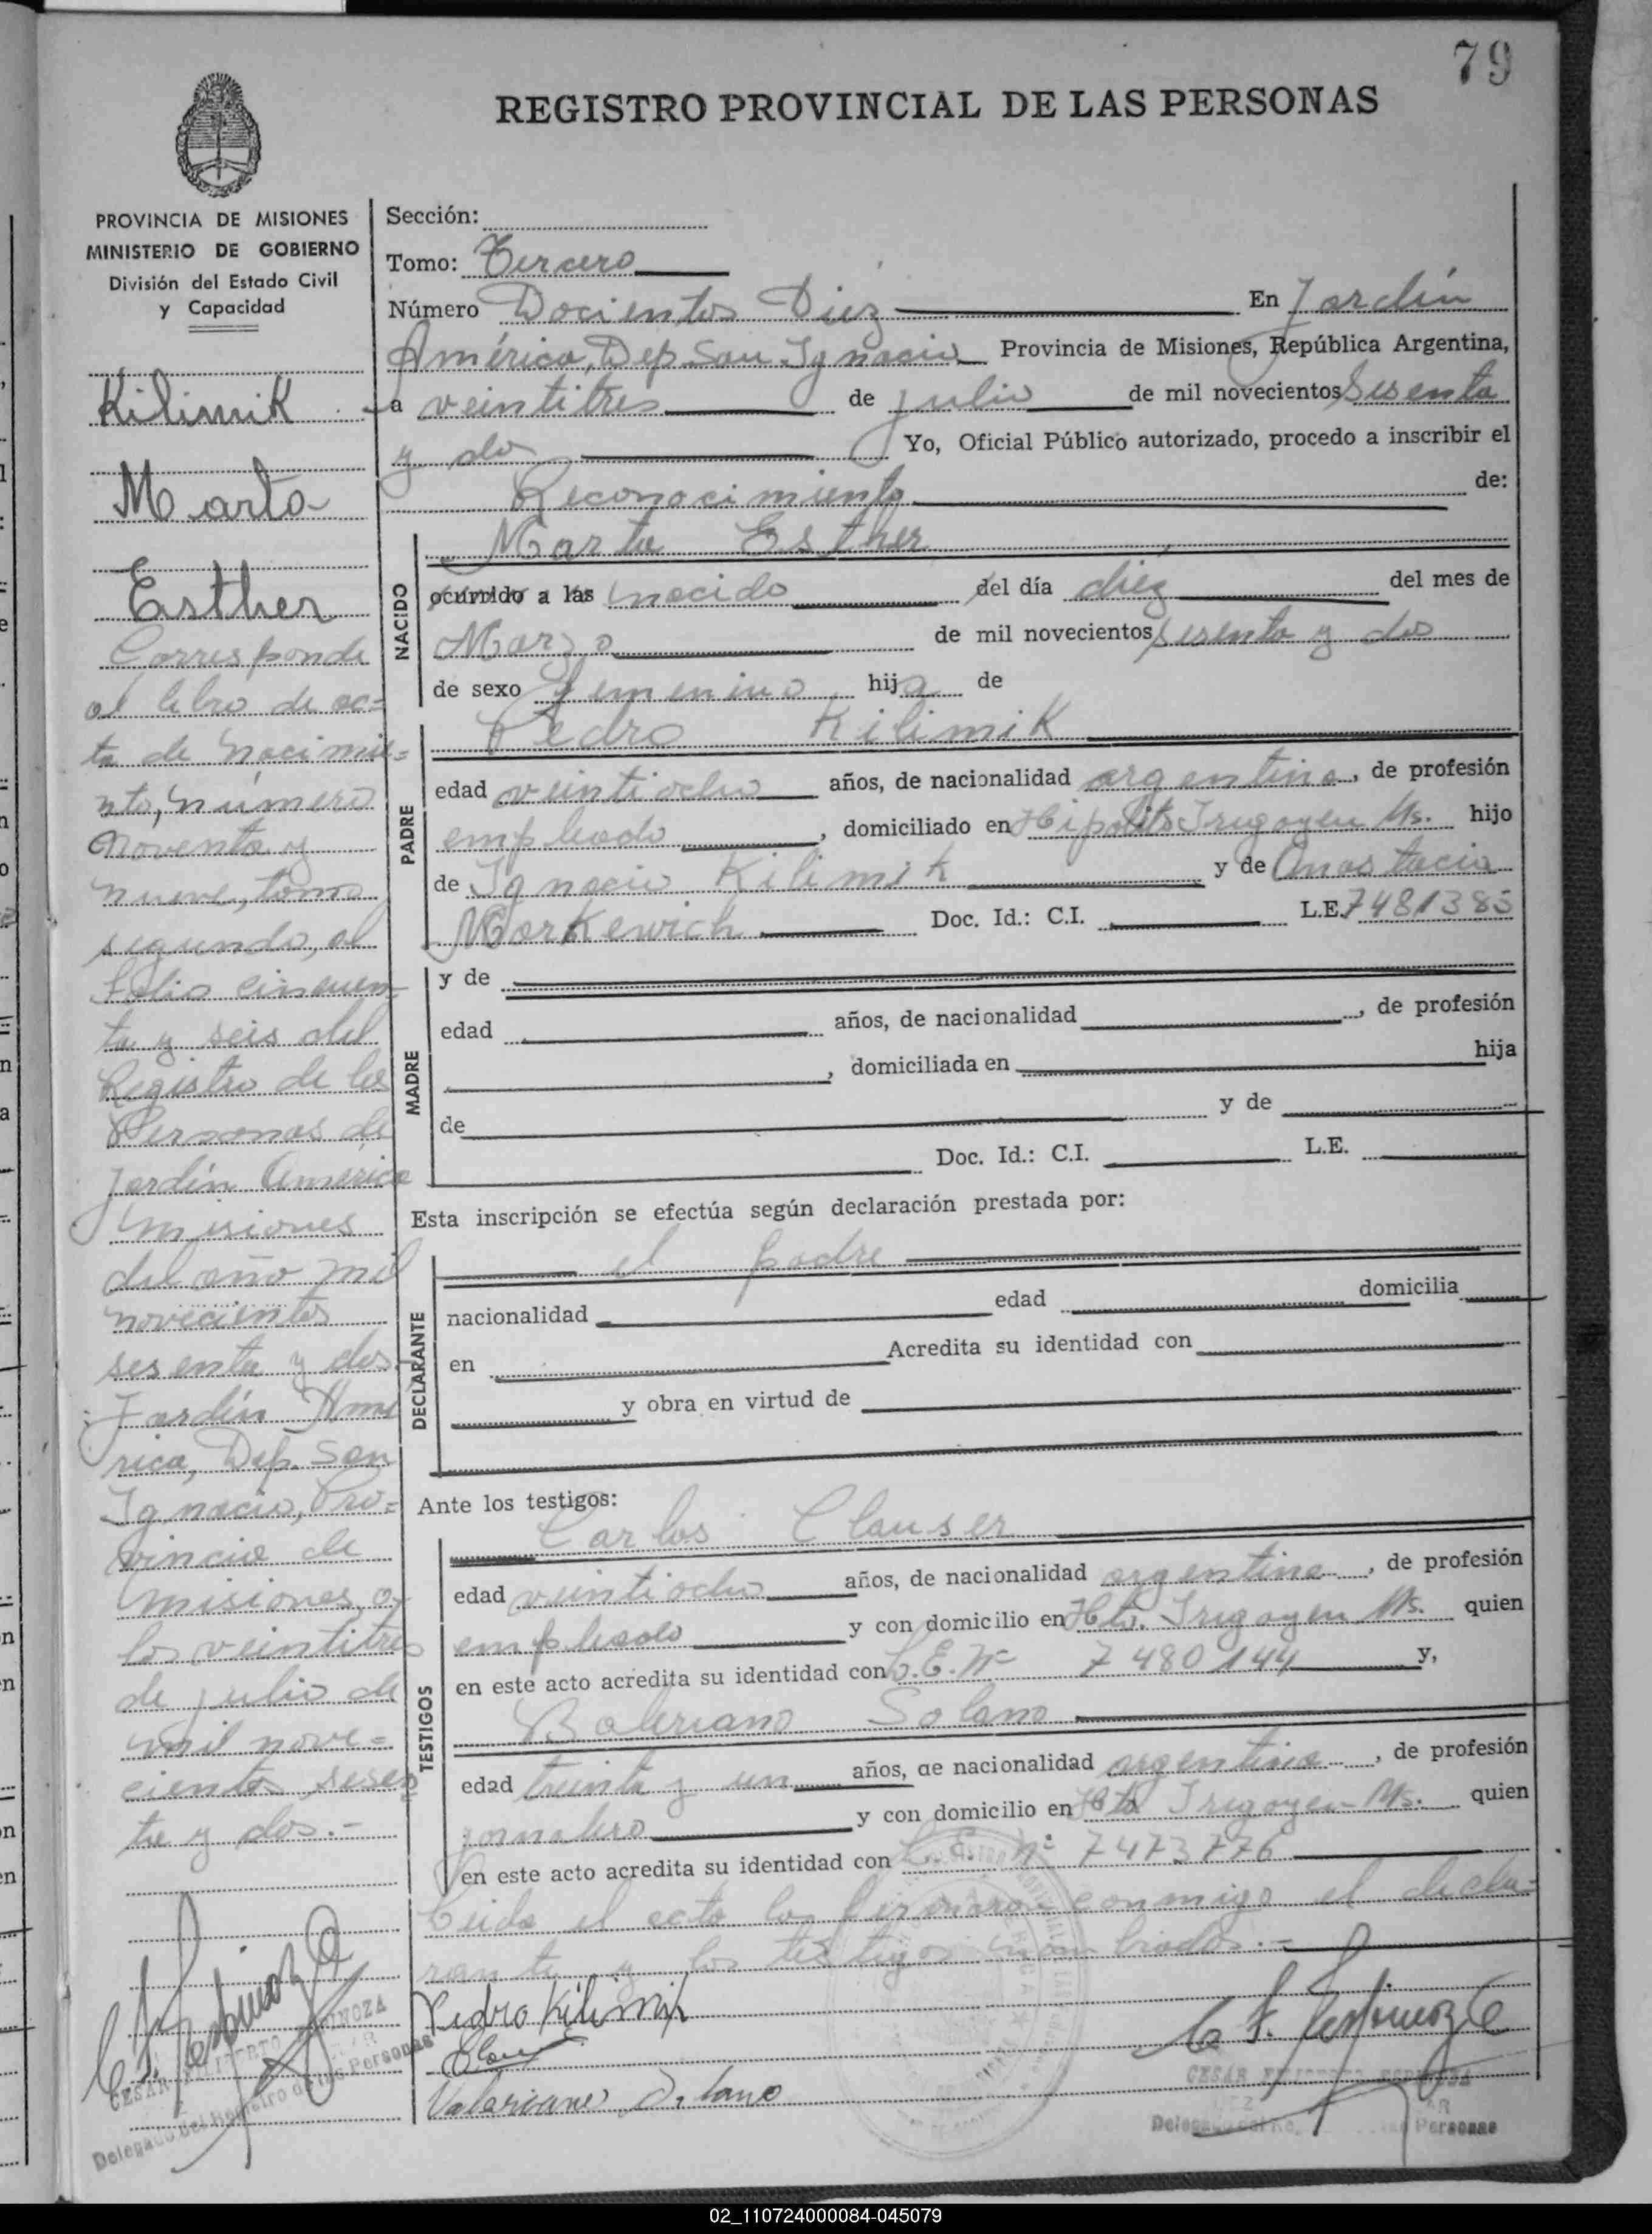 79
REGISTRO PROVINCIAL DE LAS PERSONAS
PROVINCIA DE MISIONES
MINISTERIO DE GOBIERNO
División del Estado Civil
y Capacidad
Kilimik
Marta
Esther
Corresponde
al libro de ac=
ta de nacimie=
nto, número
noventa y
nueve, tomo
segundo, al
folio cincuen
ta y seis del
Registro de las
Personas de
Jardín America
Misiones
del año mil
novecientos
sesenta y dos.
Jardín Amé
rica, Dep. San
Ignacio, Pro=
vincia de
Misiones, a
los veintitres
de julio de
mil nove=
cientos sesen
ta y dos.-
C. F. Espinoza
CESAR FILIBERTO ESPINOZA
Delegado del Registro de las Personas
Sección:
Tomo: Tercero
Número Docientos Diez En Jardín
América, Dep San Ignacio Provincia de Misiones, República Argentina,
a veintitres de julio de mil novecientos sesenta
y dos Yo, Oficial Público autorizado, procedo a inscribir el
Reconocimiento de:
NACIDO
Marta Esther
ocurrido a las nacido del día diez del mes de
Marzo de mil novecientos sesenta y dos
de sexo femenino hija de
PADRE
Pedro Kilimik
edad veintiocho años, de nacionalidad argentina, de profesión
empleado, domiciliado en Hipolito Irigoyen Ms. hijo
de Ignacio Kilimik y de Anastacia
Markewich Doc. Id.: C.I. L.E. 7481385
MADRE
y de
edad años, de nacionalidad , de profesión
, domiciliada en hija
de y de
Doc. Id.: C.I. L.E.
Esta inscripción se efectúa según declaración prestada por:
DECLARANTE
el padre
nacionalidad edad domicilia
en Acredita su identidad con
y obra en virtud de
Ante los testigos:
TESTIGOS
Carlos Clauser
edad veintiocho años, de nacionalidad argentina, de profesión
empleado y con domicilio en Hto. Irigoyen Ms. quien
en este acto acredita su identidad con L.E. Nº 7480144 y,
Baleriano Solano
edad treinta y un años, de nacionalidad argentina, de profesión
jornalero y con domicilio en Hto Irigoyen Ms. quien
en este acto acredita su identidad con L.E. Nº 7473776
Leida el acta la firmaron conmigo el decla-
rante y los testigos nombrados.=
Pedro Kilimik
Valeriano Solano
C. F. Espinoza
CESAR FILIBERTO ESPINOZA
Delegado del Personas
02_110724000084-045079